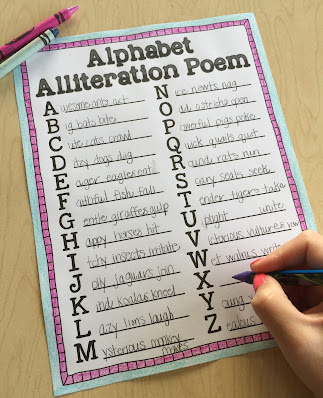 Alphabet
Alliteration Poem
Awesome ants act
Big bats bite
Cute cats crowd
Ditsy dogs dig
Eager eagles eat
Faithful fish fall
Gentle giraffes gulp
Happy horses hit
Itchy insects irritate
Jolly Jaguars join
Kind koalas kneel
Lazy laugh
Mysterious monkey
makes
Nice newts nag
Odd ostriches open
Powerful pigs poke
Quick quails quit
Round rats run
Scary seals seek
Tender tigers take
U unite
Victorious vultures
Wet walrus write
X
Young
Zealous